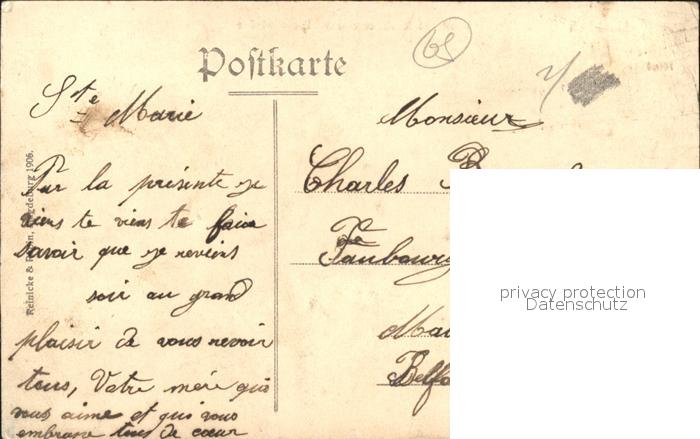 65
Postkarte
Ste Marie
Par la présente je
viens te viens te faire
savoir que je reviens
soir au grand
plaisir de vous revoir
tous, Votre mère qui
vous aime et qui vous
embrasse tous de cœur
Reinicke & Magdeburg 1906.
Monsieur
Charles B
Faubourg
Belfo
privacy protection
Datenschutz